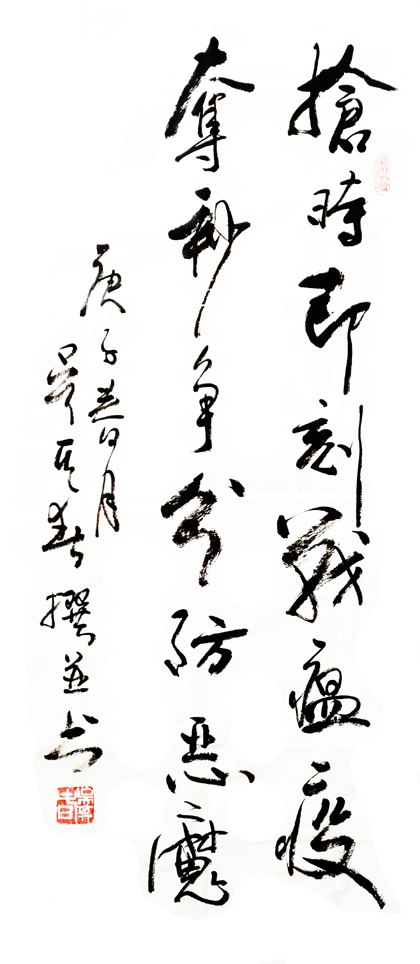 搶時即刻戰瘟疫
奪秒争分防惡魔
庚子春月
吴其春撰并书